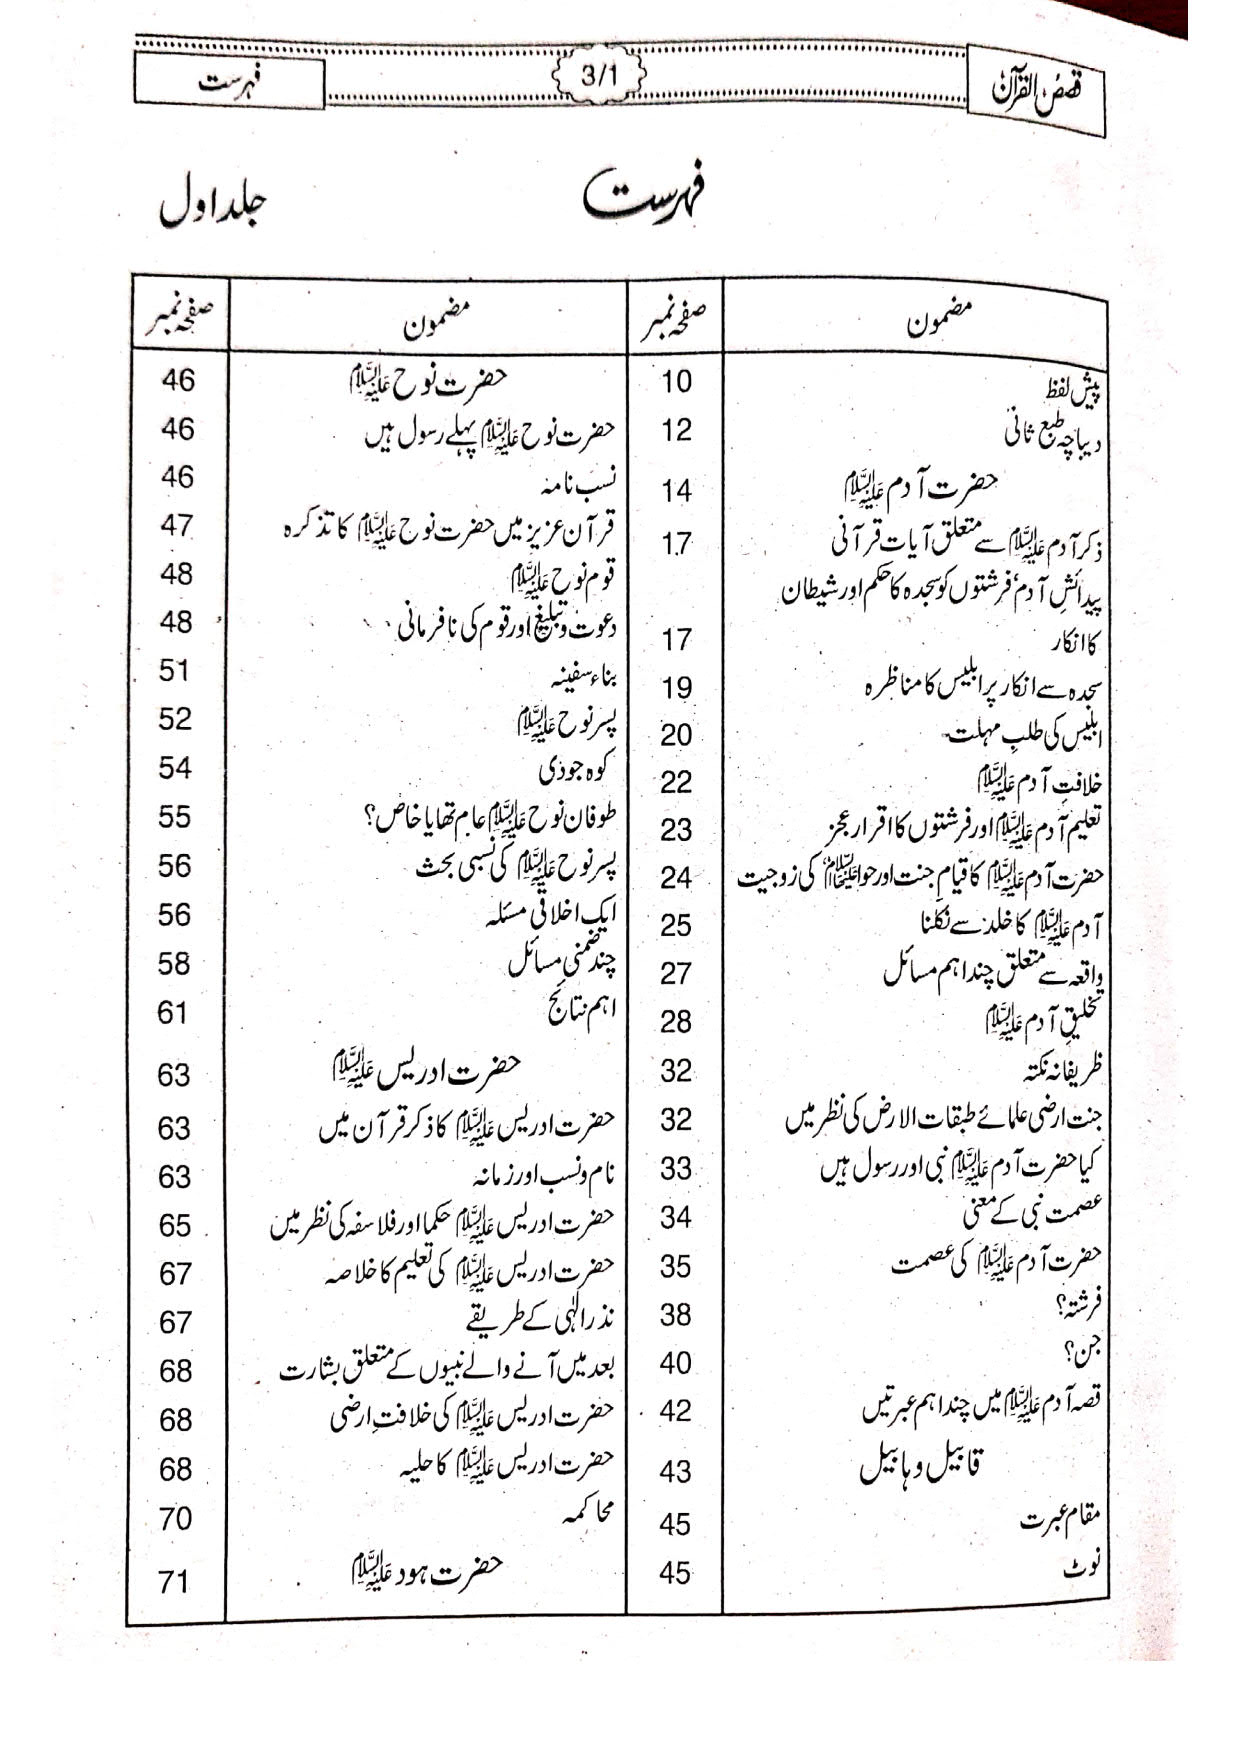 قصص القرآن
3/1
فہرست
فہرست
جلد اول
مضمون صفحہ نمبر
پیش لفظ 10
دیباچہ طبع ثانی 12
حضرت آدم علیہ السلام 14
ذکر آدم علیہ السلام سے متعلق آیات قرآنی 17
پیدائش آدم، فرشتوں کو سجدہ کا حکم اور شیطان
کا انکار 17
سجدہ سے انکار پر ابلیس کا مناظرہ 19
ابلیس کی طلبِ مہلت 20
خلافتِ آدم علیہ السلام 22
تعلیم آدم علیہ السلام اور فرشتوں کا اقرار عجز 23
حضرت آدم علیہ السلام کا قیامِ جنت اور حوا علیہا السلام کی زوجیت 24
آدم علیہ السلام کا خلد سے نکلنا 25
واقعہ سے متعلق چند اہم مسائل 27
تخلیقِ آدم علیہ السلام 28
ظریفانہ نکتہ 32
جنت ارضی علمائے طبقات الارض کی نظر میں 32
کیا حضرت آدم علیہ السلام نبی اور رسول ہیں 33
عصمت نبی کے معنی 34
حضرت آدم علیہ السلام کی عصمت 35
فرشتہ؟ 38
جن؟ 40
قصہ آدم علیہ السلام میں چند اہم عبرتیں 42
قابیل و ہابیل 43
مقام عبرت 45
نوٹ 45
مضمون صفحہ نمبر
حضرت نوح علیہ السلام 46
حضرت نوح علیہ السلام پہلے رسول ہیں 46
نسب نامہ 46
قرآن عزیز میں حضرت نوح علیہ السلام کا تذکرہ 47
قوم نوح علیہ السلام 48
دعوت و تبلیغ اور قوم کی نافرمانی 48
بناء سفینہ 51
پسر نوح علیہ السلام 52
کوہ جودی 54
طوفان نوح علیہ السلام عام تھا یا خاص؟ 55
پسر نوح علیہ السلام کی نسبی بحث 56
ایک اخلاقی مسئلہ 56
چند ضمنی مسائل 58
اہم نتائج 61
حضرت ادریس علیہ السلام 63
حضرت ادریس علیہ السلام کا ذکر قرآن میں 63
نام و نسب اور زمانہ 63
حضرت ادریس علیہ السلام حکما اور فلاسفہ کی نظر میں 65
حضرت ادریس علیہ السلام کی تعلیم کا خلاصہ 67
نذر الٰہی کے طریقے 67
بعد میں آنے والے نبیوں کے متعلق بشارت 68
حضرت ادریس علیہ السلام کی خلافتِ ارضی 68
حضرت ادریس علیہ السلام کا حلیہ 68
محاکمہ 70
حضرت ہود علیہ السلام 71